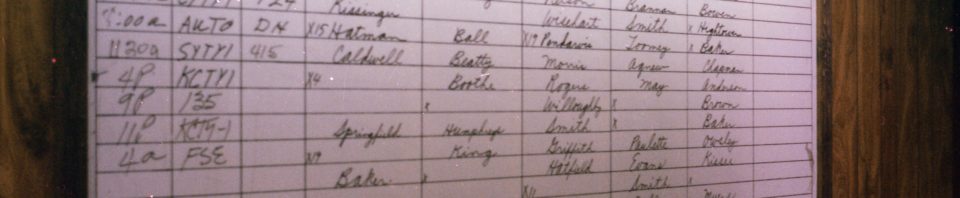 Kissinger Brannan Bowen
7:00a AUTO DH X15 Hatman Wisehart Smith x Hightower
11 30a SYTY1 415 Caldwell Ball X19 Pondarvis Toomey x Baker
4P KCTY1 X4 Beatty Morris Agnew Chapman
9P 135 x Boothe Rogers May Anderson
11P KCTY-1 Springfield Humphrey Willoughby x Brown
4a FSE X9 King Smith x Baker
Baker x Griffith Paulette Owsley
X11 Hatfield Evans Kisses
Smith x